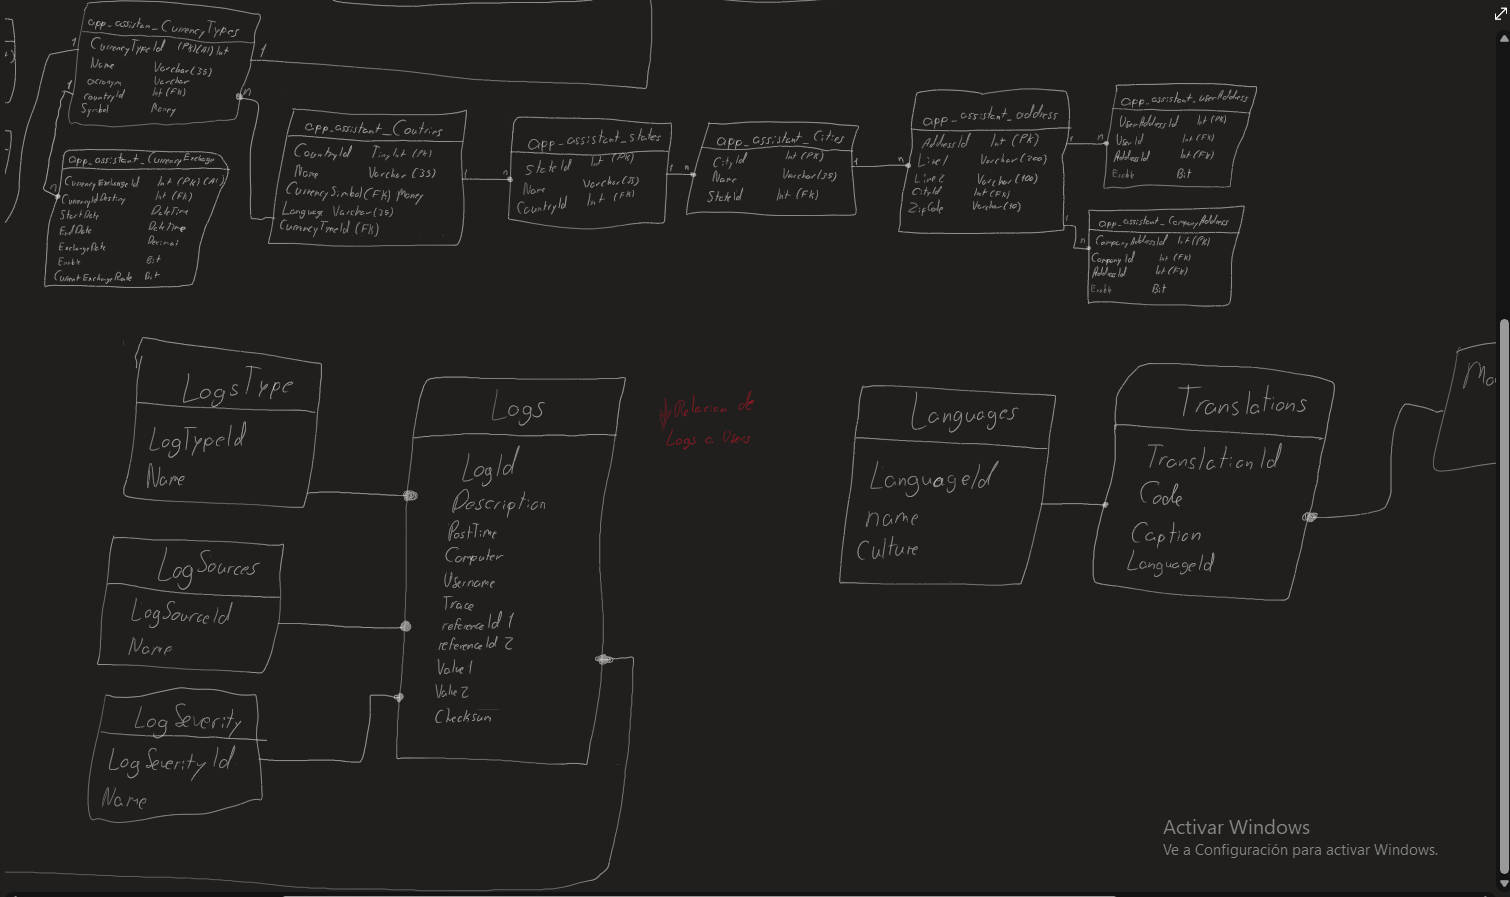 app_assistan_CurrencyTypes
CurrencyTypeId (PK)(AI) Int
Name Varchar(35)
acronym Varchar
countryId Int (FK)
Symbol Money
1
1
1
n
app_assistant_CurrencyExchange
CurrencyExchangeId Int (PK)(AI)
CurrencyIdDestiny Int (FK)
StartDate DateTime
EndDate DateTime
ExchangeRate Decimal
Enable Bit
CurrentExchangeRate Bit
n
app_assistant_Coutries
CountryId TinyInt (PK)
Name Varchar (35)
CurrencySimbol (FK) Money
Language Varchar(35)
CurrencyTypeId (FK)
1
n
app_assistant_states
StateId Int (PK)
Name Varchar(35)
CountryId Int (FK)
1
n
app_assistant_Cities
CityId Int (PK)
Name Varchar(35)
StateId Int (FK)
1
n
app_assistant_address
AddressId Int (PK)
Line1 Varchar(200)
Line2 Varchar(100)
CityId Int(FK)
ZipCode Varchar(10)
1
n
1
n
app_assistant_userAddress
UserAddressId Int (PK)
UserId Int(FK)
AddressId Int (FK)
Enable Bit
app_assistant_CompanyAddress
CompanyAddressId Int(PK)
CompanyId Int (FK)
AddressId Int(FK)
Enable Bit
LogsType
LogTypeId
Name
LogSources
LogSourceId
Name
LogSeverity
LogSeverityId
Name
Logs
LogId
Description
PostTime
Computer
Username
Trace
referenceId 1
referenceId 2
Value1
Value2
Checksum
Relacion de
Logs a Users
Languages
LanguageId
name
Culture
Translations
TranslationId
Code
Caption
LanguageId
Mo
Activar Windows
Ve a Configuración para activar Windows.